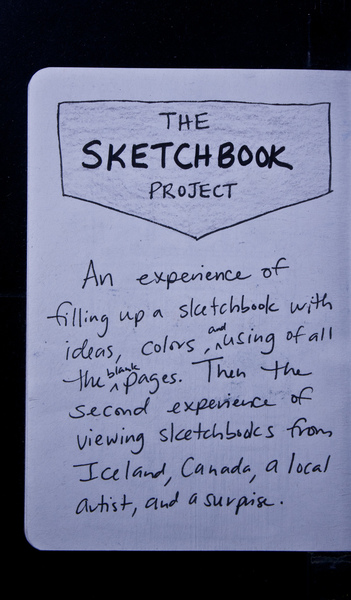 THE
SKETCHBOOK
PROJECT
An experience of
filling up a sketchbook with
ideas, colors, and using of all
the blank pages. Then the
second experience of
viewing sketchbooks from
Iceland, Canada, a local
artist, and a surprise.